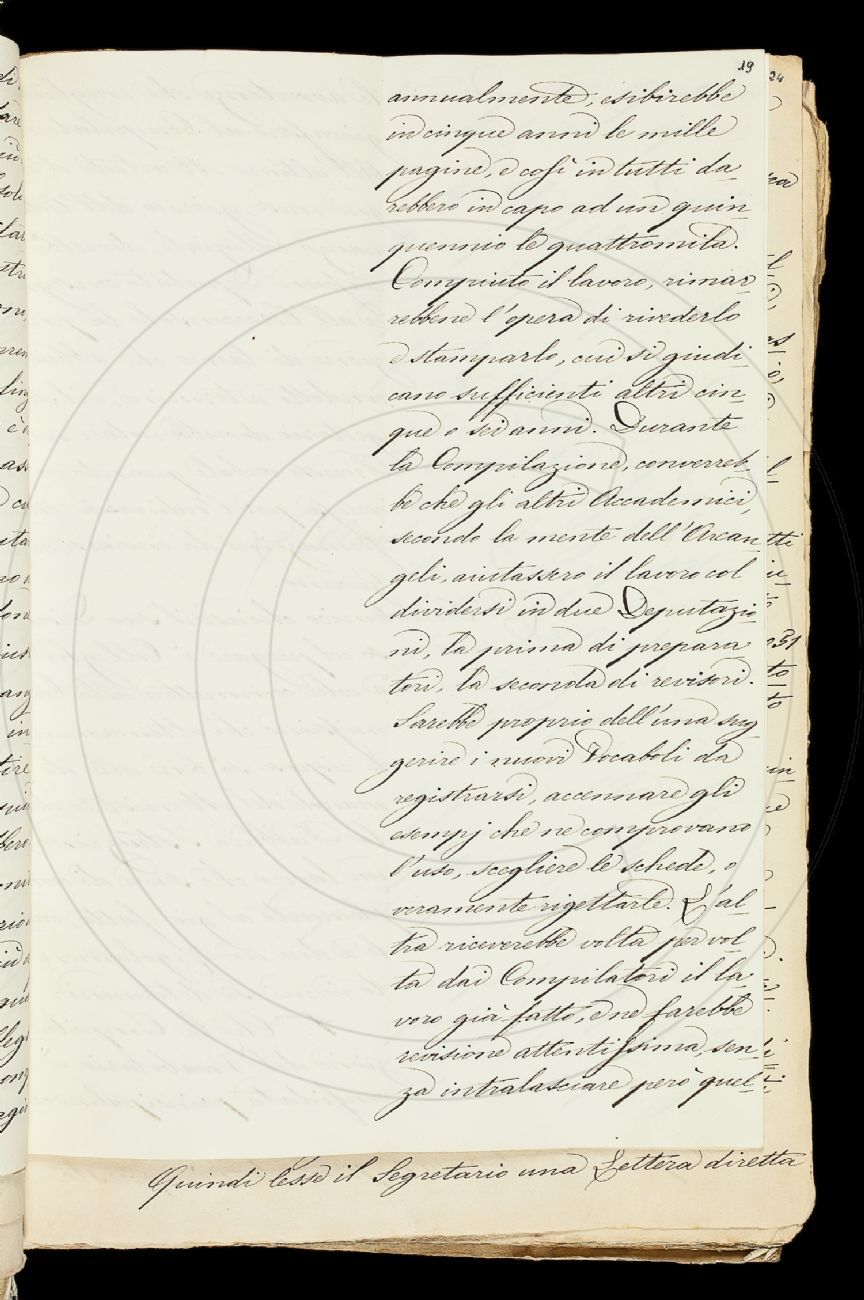 19
24
annualmente, esibirebbe
in cinque anni le mille
pagine, e così in tutti da-
rebbero in capo ad un quin-
quennio le quattromila.
Compiuto il lavoro, rimar-
rebbene l'opera di rivederlo
e stamparlo, cui si giudi-
cano sufficienti altri cin-
que o sei anni. Durante
la Compilazione, converreb-
be che gli altri Accademici,
secondo la mente dell'Arcan-
geli, aiutassero il lavoro col
dividersi in due Deputazio-
ni, la prima di prepara-
tori, la seconda di revisori.
Sarebbe proprio dell'una sug-
gerire i nuovi Vocaboli da
registrarsi, accennare gli
esempj che ne comprovano
l'uso, scegliere le schede, o
veramente rigettarle. L'al-
tra riceverebbe volta per vol-
ta dai Compilatori il la-
voro già fatto, e ne farebbe
revisione attentissima, sen-
za intralasciare però quel-
Quindi lesse il Segretario una Lettera diretta